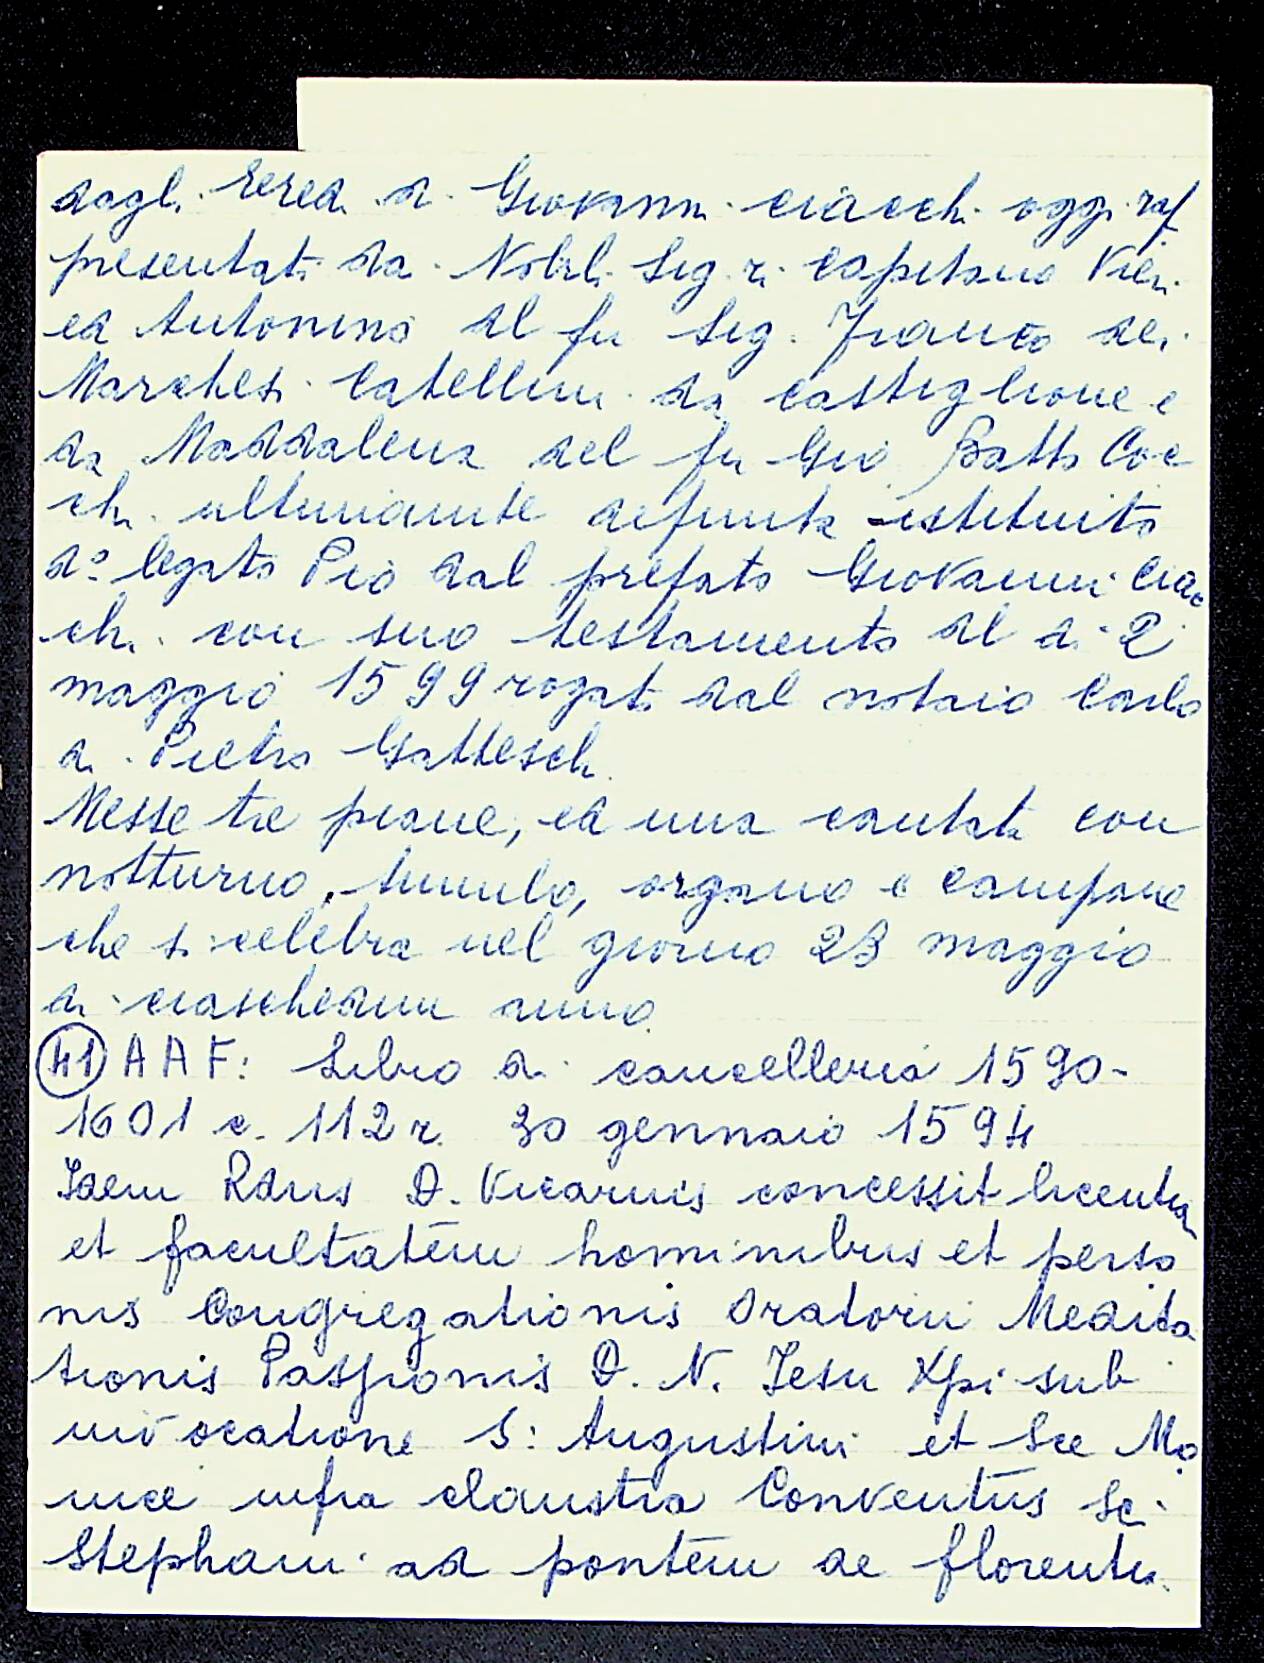 dagli Eredi di Giovanni Ciacchi oggi rap
presentati da Nobili Sig.ri Capitano Vieri
ed Antonino del fu Sig. Franco dei
Marchesi Catellini da Castiglione e
da Maddalena del fu Gio Batta Coc
chi ultimamente defunta istituito
do legato Pio dal prefato Giovanni Ciac
chi con suo testamento del dì 2
maggio 1599 rogato dal notaio Carlo
di Pietro Gatteschi
Messe tre piane, ed una cantata con
notturno, tumulo, organo e campane
che si celebra nel giorno 23 maggio
di ciaschedun anno
41 A A F: Libro di cancelleria 1590-
1601 c. 112 r. 30 gennaio 1594
Idem Rdus D. Vicarius concessit licentiam
et facultatem hominibus et perso
nis Congregationis Oratorii Medita
tionis Passionis D. N. Iesu Xpi sub
invocatione S: Augustini et Sce Mo
nice infra claustra Conventus Sci
Stephani ad pontem de florentia